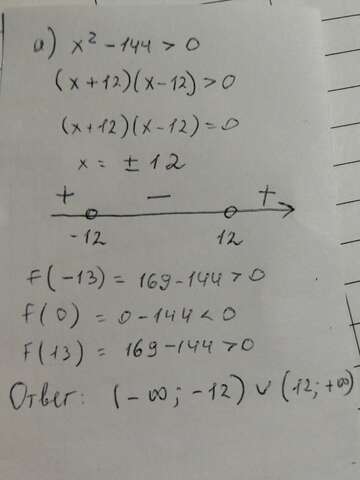 а) x² - 144 > 0
(x+12)(x-12) > 0
(x+12)(x-12) = 0
x = ± 12
+ − +
-12 12
F(-13) = 169-144 > 0
F(0) = 0-144 < 0
F(13) = 169-144 > 0
Ответ: (-∞; -12) ∪ (12; +∞)